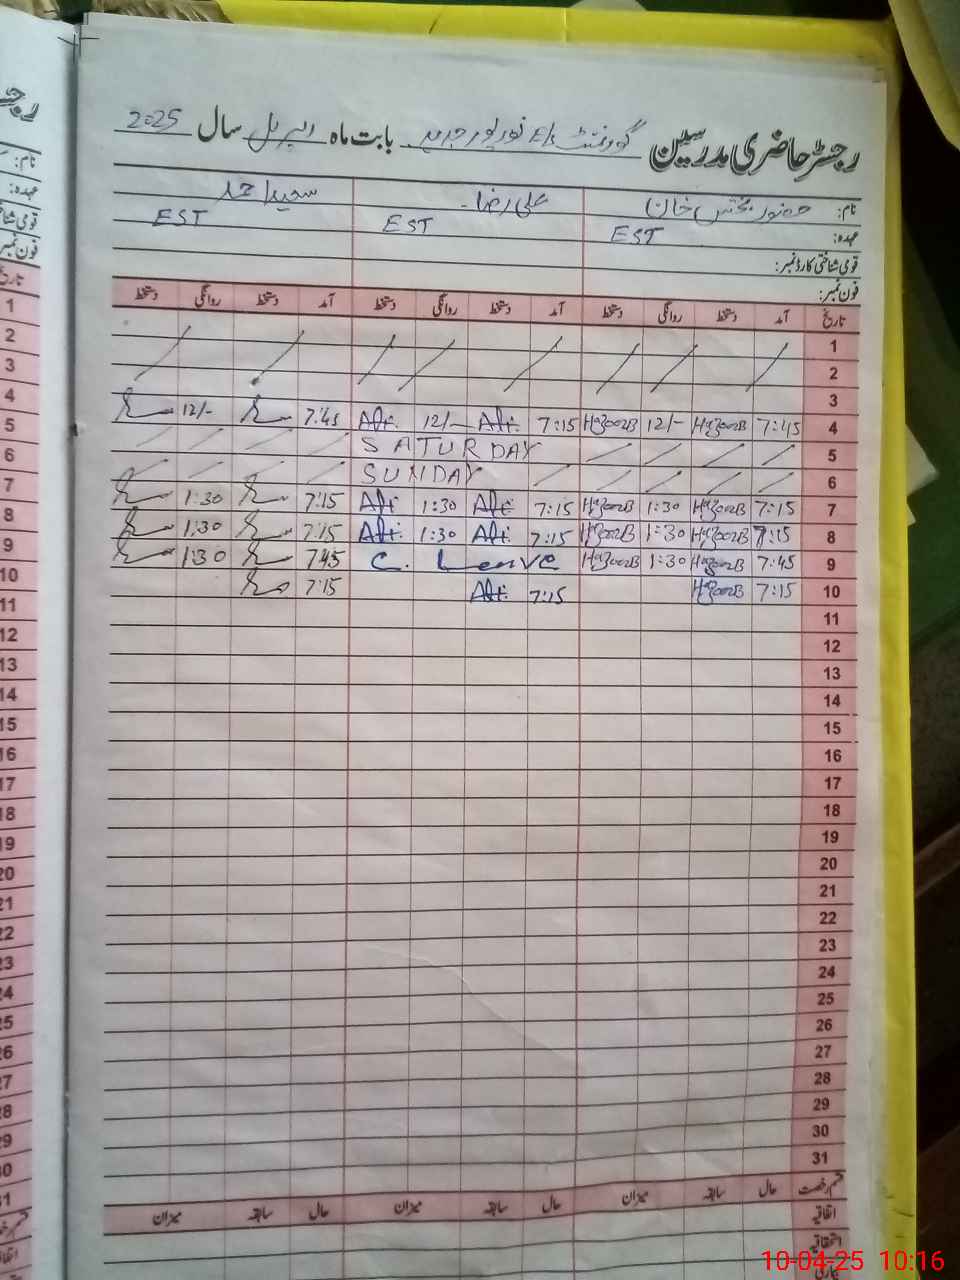 رجسٹر حاضری مدرسین گورنمنٹ E/s نور پور جدید بابت ماہ اپریل سال 2025
نام: حضور بخش خان علی رضا سعید احمد
عہدہ: EST EST EST
قومی شناختی کارڈ نمبر:
فون نمبر:
تاریخ آمد دستخط روانگی دستخط آمد دستخط روانگی دستخط آمد دستخط روانگی دستخط
1
2
3
7:45 12/- Ali 7:15 Ali 12/- HazoorB 7:45 HazoorB 12/- 4
SATURDAY 5
SUNDAY 6
1:30 7:15 Ali 1:30 Ali 7:15 HazoorB 1:30 HazoorB 7:15 7
1:30 7:15 Ali 1:30 Ali 7:15 HazoorB 1:30 HazoorB 7:15 8
1:30 7:45 C. Leave HazoorB 1:30 HazoorB 7:45 9
7:15 Ali 7:15 HazoorB 7:15 10
11
12
13
14
15
16
17
18
19
20
21
22
23
24
25
26
27
28
29
30
31
قسم رخصت حال سابقہ میزان حال سابقہ میزان حال سابقہ میزان
اتفاقیہ
استحقاقیہ
10-04-25 10:16